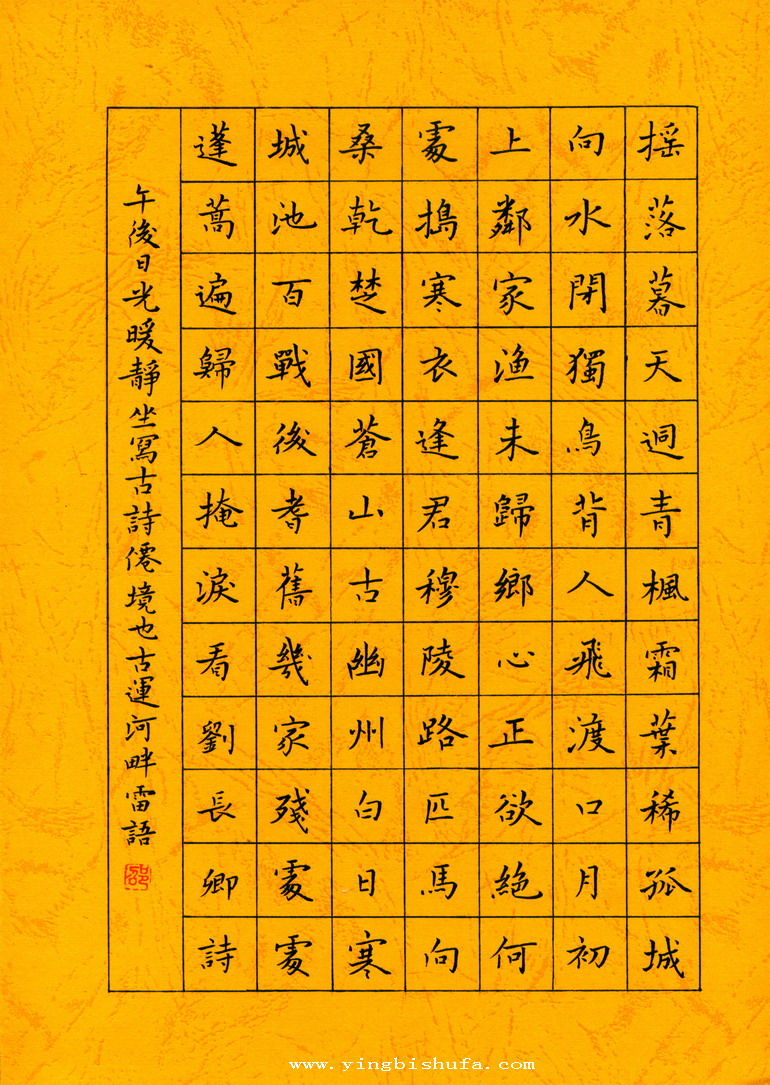 摇落暮天迥青楓霜葉稀孤城
向水閉獨鳥背人飛渡口月初
上鄰家渔未歸鄉心正欲絶何
處搗寒衣逢君穆陵路匹馬向
桑乾楚國蒼山古幽州白日寒
城池百戰後耆舊幾家殘處處
蓬蒿遍歸人掩淚看劉長卿詩
午後日光暖靜坐寫古詩僊境也古運河畔雷語
邵
www.yingbishufa.com